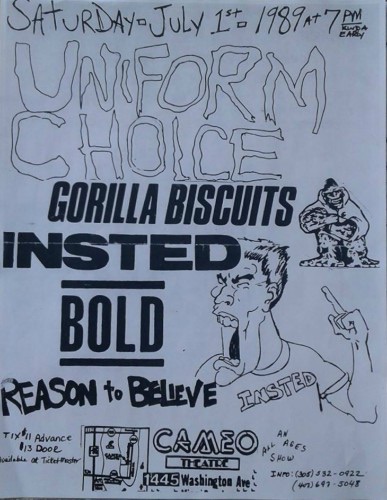 SATURDAY-JULY 1st-1989 AT 7 PM
KINDA EARLY
UNIFORM
CHOICE
GORILLA BISCUITS
INSTED
BOLD
REASON to BELIEVE
INSTED
TIX $11 Advance
$13 DOOR
Available at TicketMaster
CAMEO
THEATRE
1445 Washington Ave
AN
ALL AGES
SHOW
INFO: (305) 532-0922
(407) 697-5048